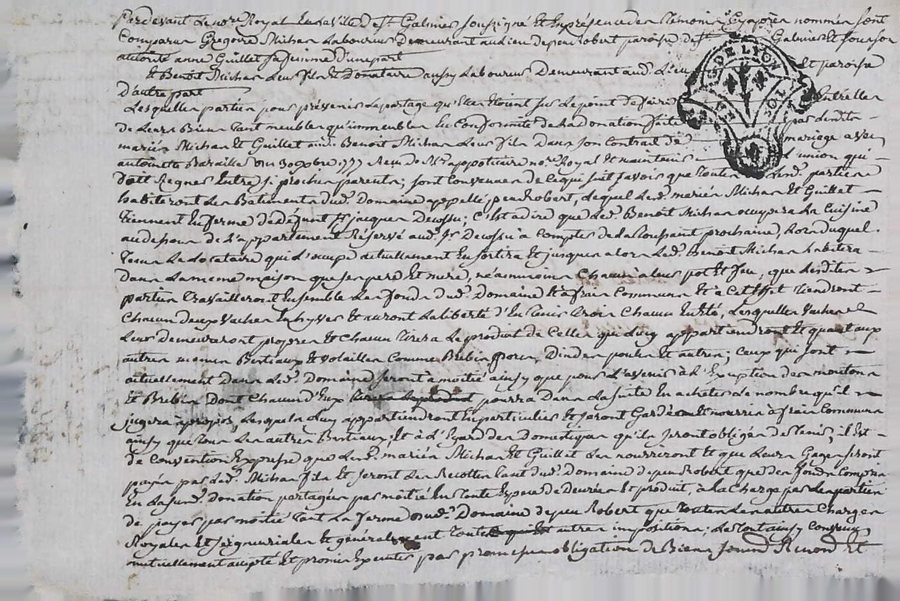 Pardevant Le no.re Royal En La Ville de St Galmier Soussigné Et En présence des témoins cy après nommés sont
Comparus Gregoire Michas Laboureur demeurant au lieu de peu robert paroisse de St Galmier Et Son Son
autorité anne Guillet sa femme d'une part
Et Benoit Michas Leur fils Et Donataire aussy Laboureur Demeurant aud. Lieu Et paroisse
D'autre part
Lesquelles parties pour prévenir Le partage qu'elles Etoient sur Le point de faire Entrelles
de Leurs Biens tant meubles qu'immeubles En Conformité de La donation faite par lesdits
mariés Michas Et Guillet aud. Benoit Michas Leur fils Dans son Contrat de mariage avec
antoinette Barailles du 30 octobre Reçu de no.re Royal Et maintenir L'union qui
Doit Regner Entre si proches parents; sont Convenues de Ce qui suit savoir que toutes Lesd. parties
habiteront Les Batiments dud. Domaine appellé peu Robert, duquel Lesd. mariés Michas Et Guillet
tiennent En ferme de defunt Sr jacques C'est a dire que Led. Benoit Michas occupera La Cuisine
au dessous de L'appartement Réservé aud. Sr a Compter de La toussaint prochaine, Lors duquel
tems Le Locataire qui L'occupe actuellement En sortira Et jusques alors Led. Benoit Michas habitera
Dans La meme maison que ses pere Et mere, néanmoins Chacun a leur pot Et feu, que Lesdites
parties travailleront Ensemble Les fonds dud. Domaine Et a frais Communs Et a Cet Effet tiendront
Chacun deux Vaches En hyver Et auront La liberté d'En tenir trois Chacun En Eté, Lesquelles Vaches
Leur demeureront propres Et Chacun tirera Le produit de Celles qui Luy appartiendront Et quant aux
autres menus Bestiaux Et Volailles Comme Brebis, porcs, Dindes, poules Et autres; Ceux qui sont
actuellement Dans Led. Domaine seront a moitié ainsy que pour L'avenir a L'Exception des moutons
Et Brebis Dont Chacun d'Eux pourra Dans La suite En acheter de nombre qu'il
jugera a propos, Lesquels Luy appartiendront En particulier Et seront Gardés Et nourris a frais Communs
ainsy que tous Les autres Bestiaux; Et a L'Egard des Domestiques qu'ils seront obligés de tenir, il Est
de Convention Expresse que Lesd. mariés Michas Et Guillet Les nourriront Et que Leurs Gages seront
payés par Led. Michas fils Et seront Les Recoltes tant dud. Domaine de peu Robert que des fonds Compris
En La susd. Donation partagées par moitié En toute Espece de Denrées Et produit, a La Charge par Les parties
de payer par moitié tant La ferme dud. Domaine de peu Robert que toutes Les autres Charges
Royales Et seigneuriales Et generalement toutes autres impositions; Le tout ainsy Convenu
mutuellement accepté Et promis Executer par promesse obligation de Biens Et
G. DE LYON